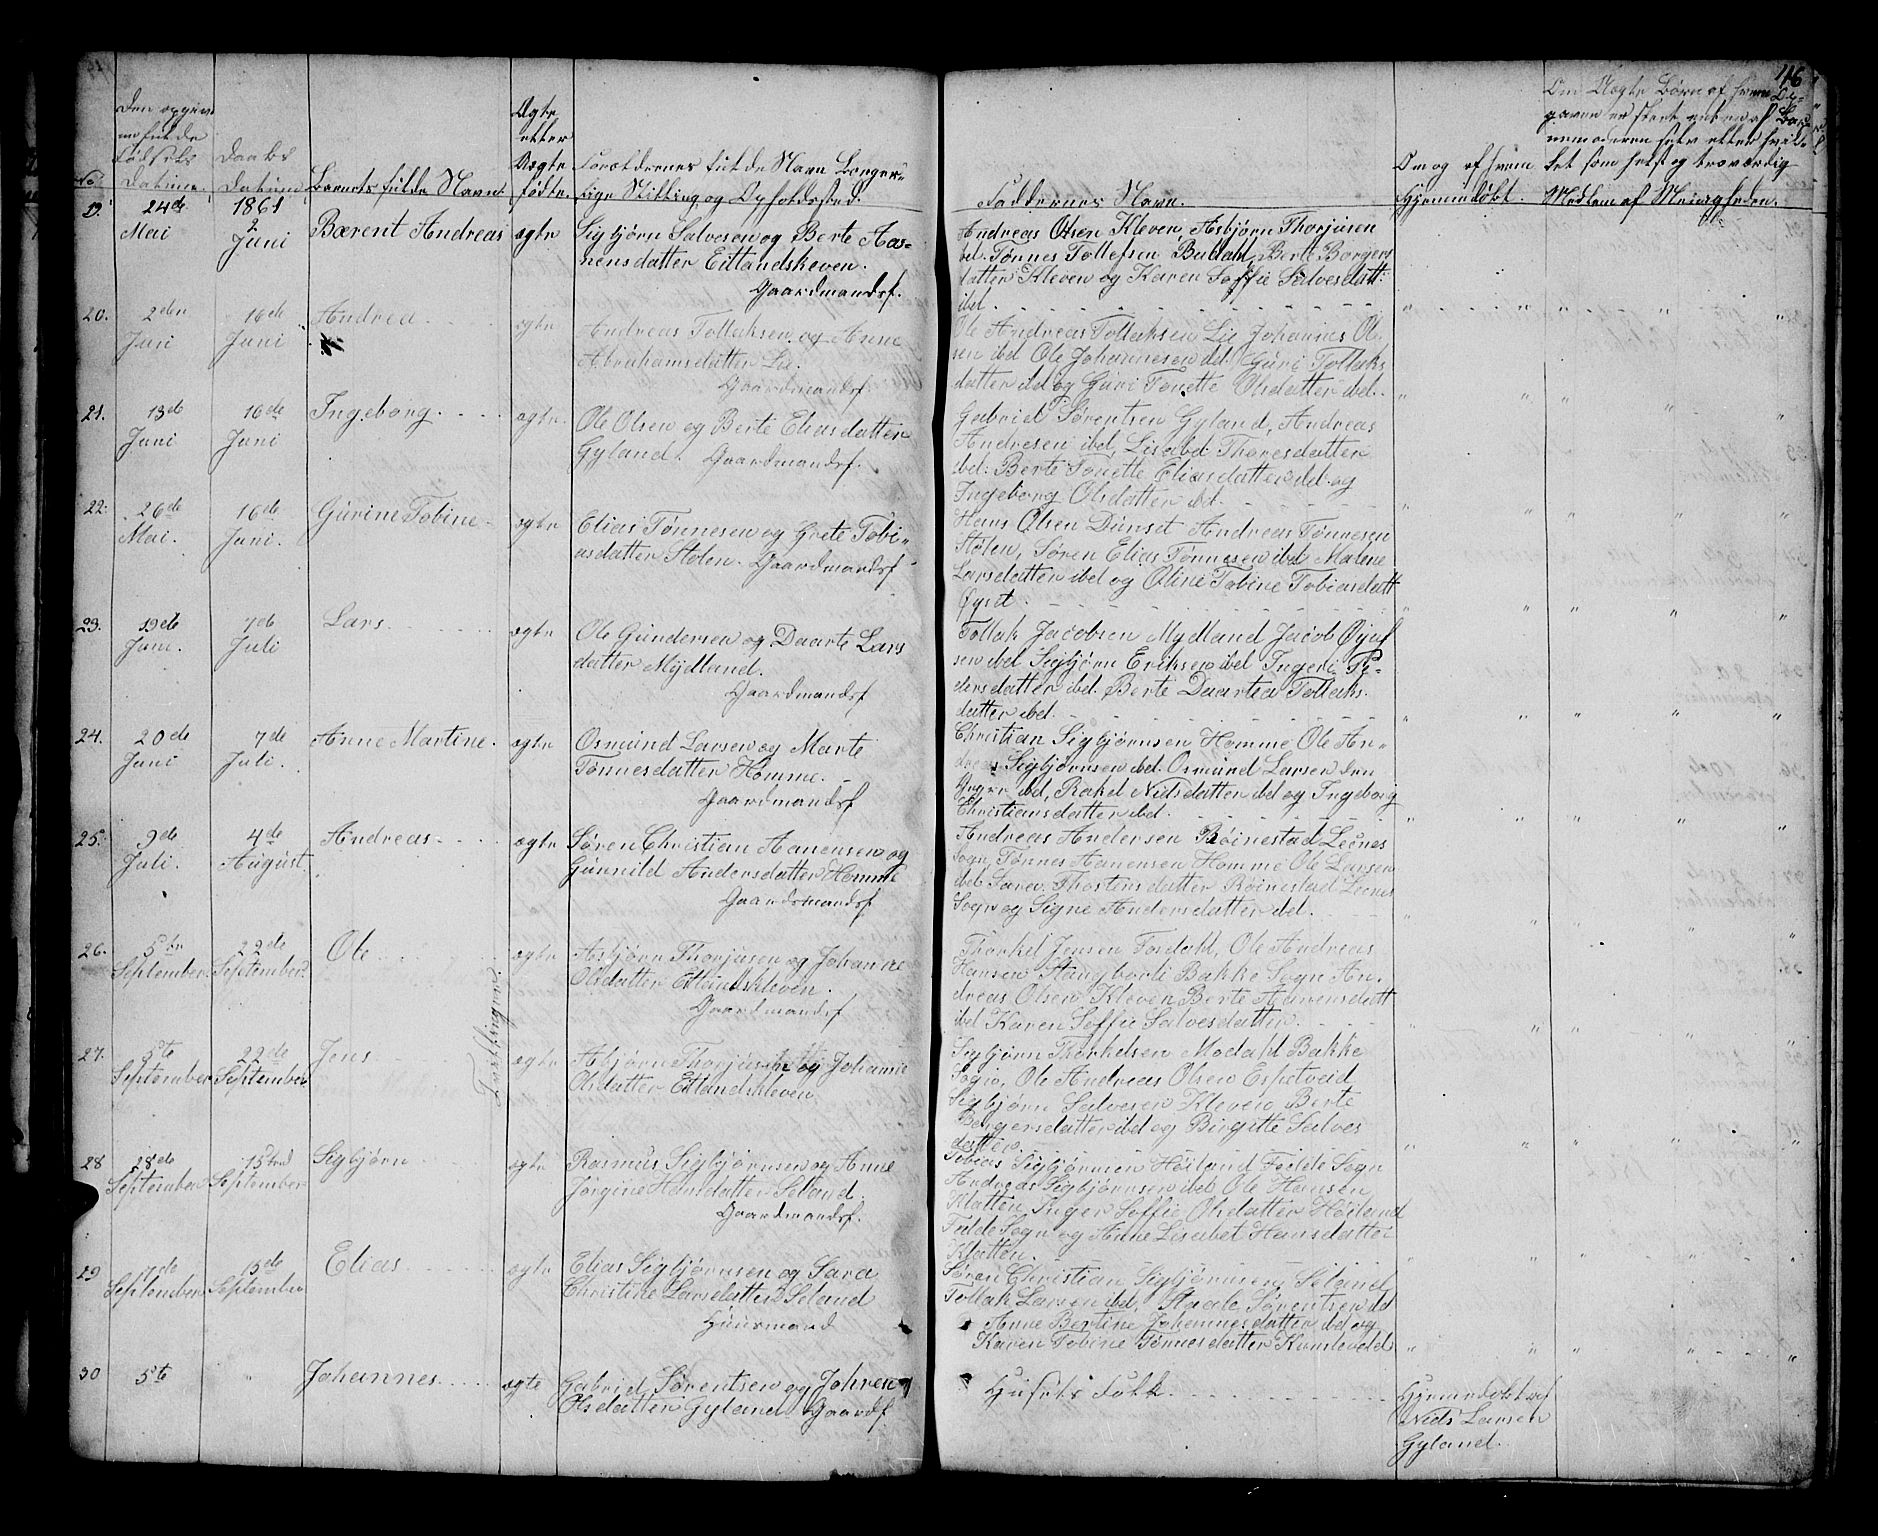 116
No.
Den opgiv
ne fulde
Fødsels
Datum.
Daabs
Datum
Barnets fulde Navn.
Ægte
eller
Uægte
fødte.
Forældrenes fulde Navn Borger-
lige Stilling og Opholdssted.
Faddernes Navn.
Om og af hvem
Hjemmedøbt.
Om Uægte Børn af hvem
nemoderen selv eller hvil-
ket som helst og troværdig
Medlem af Menigheden.
19.
24de
Mai
1861
2
Juni
Bærent Andreas
ægte
Sigbjørn Salvesen og Berte Aa-
nensdatter Eitlandskleven.
Gaardmandsf.
Andreas Olsen Kleven, Asbjørn Thorjusen
ibd. Tønnes Tollefsen Budahl, Berte Borgers
datter Kleven og Karen Soffie Salvesdatt:
ibd.
20.
2den
Juni
16de
Juni
Andrea
ægte
Andreas Tollaksen og Anne
Abrahamsdatter Lie.
Gaardmandsf.
Ole Andreas Tollaksen Lie Johannes Ol
sen ibd Ole Johannesen ibd. Guri Tollaks
datter ibd og Guri Tonette Olsdatter ibd.
21.
13de
Juni
16de
Juni
Ingeborg.
ægte.
Ole Olsen og Berte Eliasdatter
Gyland. Gaardmandsf.
Gabriel Sørentsen Gyland, Andreas
Andresen ibd, Lisabet Thoresdatter
ibd: Berte Tonette Eliasdatter ibd. og
Ingeborg Olsdatter ibd.
22.
26de
Mai.
16de
Juni.
Gurine Tobine
ægte
Elias Tønnesen og Grete Tobi-
asdatter Stølen. Gaardmandsf
Hans Olsen Dunset Andreas Tønnesen
Stølen, Søren Elias Tønnesen ibd Malene
Larsdatter ibd og Oline Tobine Tobiasdatt
Øyset.
23.
19de
Juni.
7de
Juli
Lars.
ægte
Ole Gundersen og Daarte Lars
datter Mydland.
Gaardmandsf
Tollak Jacobsen Mydland Jacob Øyuf
sen ibd Sigbjørn Eriksen ibd Ingeri Pe-
dersdatter ibd. Berte Daartea Tollaks.
datter ibd.
24.
20de
Juni
7de
Juli.
Anne Martine.
ægte
Osmund Larsen og Marte
Tønnesdatter Homme.
Gaardmandsf
Christian Sigbjørnsen Homme Ole An-
dreas Sigbjørnsen ibd. Osmund Larsen den
Yngre ibd, Rakel Nielsdatter ibd og Ingeborg
Christiansdatter ibd.
25.
9de
Juli.
4de
August
Andreas
ægte
Søren Christian Aanensen og
Gunnild Andersdatter Homme
Gaardsmandsf
Andreas Andersen Røinestad Leenes
Sogn, Tønnes Aanensen Homme Ole Larsen
ibd Sara Thostensdatter Røinestad Leenes
Sogn og Signe Andersdatter ibd.
26.
5te
September.
22de
September.
Ole
Tvillinger.
ægte
Asbjørn Thorjusen og Johanne
Olsdatter Eitlandskleven.
Gaardmandsf
Thorkel Jensen Fordahl, Ole Andreas
Hansen Stangborli Bakke Sogn An-
dreas Olsen Kleven Berte Aanensdatt
ibd Karen Soffie Salvesdatter.
27.
5te
September
22de
September
Jens
ægte
Asbjørn Thorjusen og Johanne
Olsdatter Eitlandskleven
Sigbjørn Thorkelsen Modahl Bakke
Sogn, Ole Andreas Olsen Espetveid
Sigbjørn Salvesen Kleven Berte
Borgersdatter ibd og Birgitte Salves
datter.
28
28de
September
15tend
September
Sigbjørn
ægte
Rasmus Sigbjørnsen og Anne
Jørgine Hansdatter Seland.
Gaardmandsf.
Tobias Sigbjørnsen Høiland Feilde Sogn
Andreas Sigbjørnsen ibd Ole Hansen
Klatten, Inger Soffie Olsdatter Høiland
Feilde Sogn og Anne Lisabet Hansdatter
Klatten.
29
7de
September
15de
September
Elias.
ægte
Elias Sigbjørnsen og Sara
Christine Larsdatter Seland
Huusmand
Søren Christian Sigbjørnsen Seland
Tollak Larsen ibd, Staale Sørentsen ibd
Anne Bertine Johannesdatter ibd og
Karen Tobine Tønnesdatter Kumlevold
30
5te
Johannes
ægte
Gabriel Sørentsen og Johren
Olsdatter Gyland Gaardf
Husets Folk.
Hjemmedøbt af
Niels Larsen
Gyland.